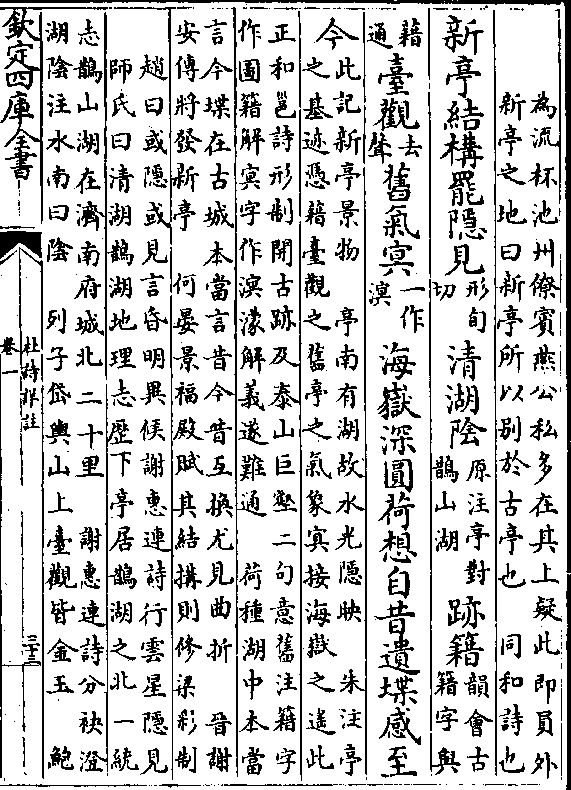 為流杯池州僚賓燕公私多在其上疑此即員外
新亭之地曰新亭所以别於古亭也　同和詩也
新亭結構罷隱見形旬切清湖陰原注亭對鵲山湖跡籍韻會古籍字與
藉通臺觀去聲舊氣冥一作溟海嶽深圓荷想自昔遺堞感至
今此記新亭景物　亭南有湖故水光隱映　朱注亭
之基迹憑藉臺觀之舊亭之氣象冥接海嶽之遙此
正和邕詩形制開古跡及泰山巨壑二句意舊注籍字
作圖籍解冥字作溟濛解義遂難通　荷種湖中本當
言今堞在古城本當言昔今昔互換尤見曲折　晉謝
安傳將發新亭　何晏景福殿賦其結構則修梁彩制
趙曰或隱或見言昏明異候謝惠連詩行雲星隱見
師氏曰清湖鵲湖地理志歷下亭居鵲湖之北一統
志鵲山湖在濟南府城北二十里　謝惠連詩分袂澄
湖陰注水南曰陰　列子岱輿山上臺觀皆金玉　鮑
欽定四庫全書
杜詩詳註
卷一
三十三